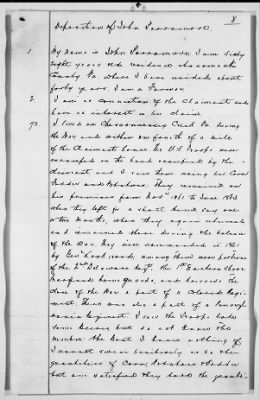 8
Deposition of John Parramore.
1 My name is John Parramore. I am Sixty
eight years old residence Accomack
County Va. where I have resided about
forty years. I am a Farmer.
2 I am no connection of the Claimant and
have no interest in her claim.
72 I lived on Chesconnessex Creek Va. during
the War and within one fourth of a mile
of the Claimant's house. The U.S. Troops were
encamped on the land occupied by the
claimant and I saw them using her Corn
Fodder and Potatoes. They remained on
his premises from Nov 1861 to June 1863
when they left for a short time, say one
or two Months, when they again returned
and remained there during the balance
of the War. They were commanded in 1861
by Gen'l Lockwood, among them were portions
of the 2nd Delaware Regt, the 1st Eastern Shore
Maryland home guards, and towards the
close of the War a part of a Colored Regi-
ment. There was also a part of a Pennsyl-
vania Regiment. I seed the Troops hold
some Horses but do not know the
number, the Boat I know nothing of
I cannot swear positively as to the
quantities of Corn, Potatoes & Fodder
but am satisfied they had the greater